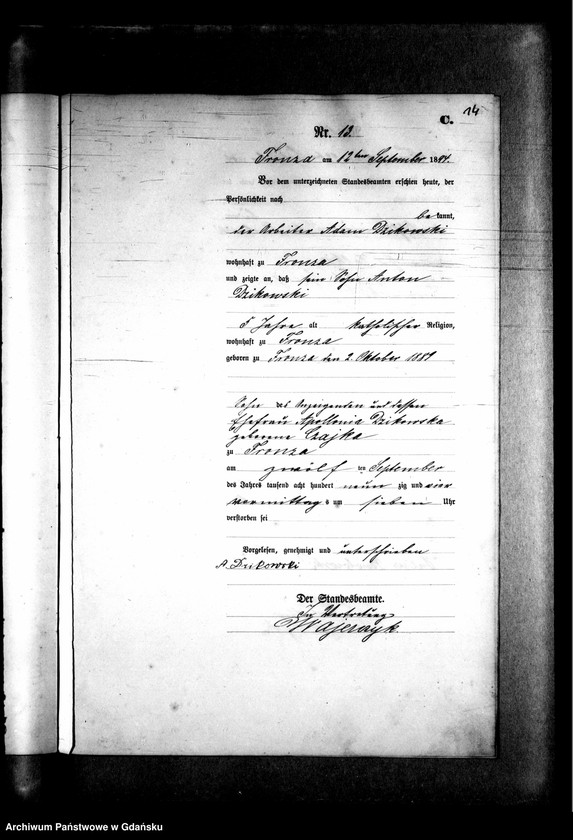 14
C.
Nr. 13.
Tronza am 12ten September 1894.
Vor dem unterzeichneten Standesbeamten erschien heute, der
Persönlichkeit nach
bekannt,
der Arbeiter Adam Dzikowski
wohnhaft zu Tronza
und zeigte an, daß sein Sohn Anton
Dzikowski
5 Jahre alt katholischer Religion,
wohnhaft zu Tronza
geboren zu Tronza den 2. Oktober 1889
Sohn des Anzeigenden und dessen
Ehefrau Apollonia Dzikowska
geborene Czajka
zu Tronza
am zwölf ten September
des Jahres tausend acht hundert neun zig und vier
vormittags um sieben Uhr
verstorben sei
Vorgelesen, genehmigt und unterschrieben
A. Dzikowski
Der Standesbeamte.
In Vertretung
Majerczyk
Archiwum Państwowe w Gdańsku